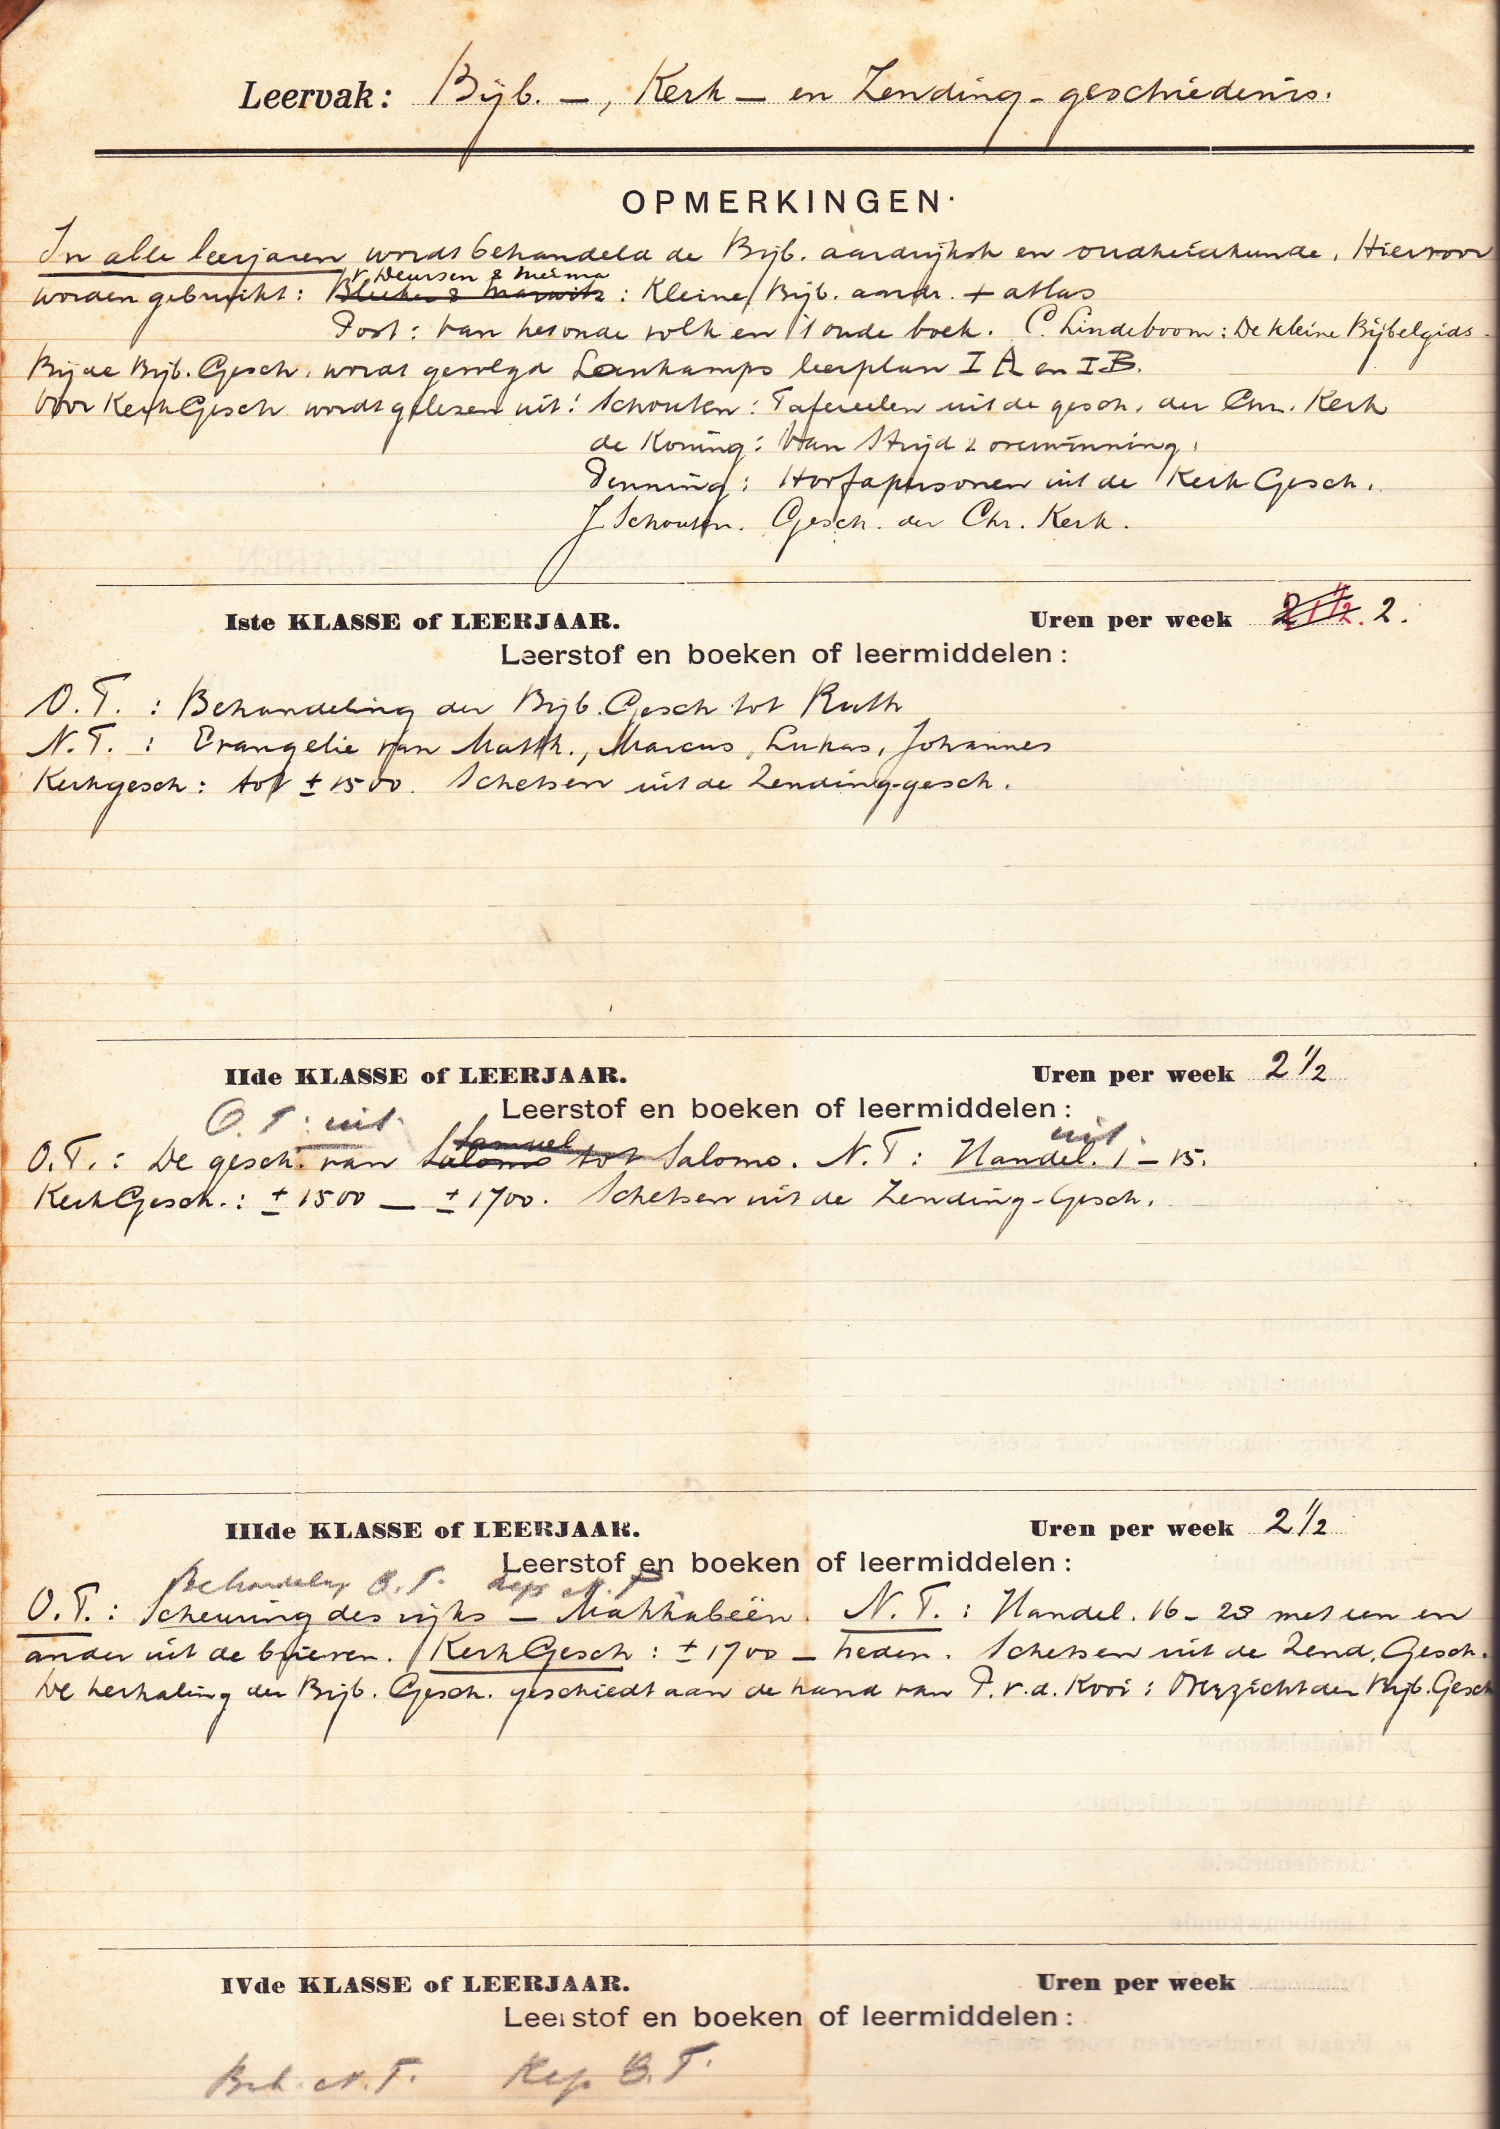 Leervak: Bijb. –, Kerk – en Zending - geschiedenis.
OPMERKINGEN.
In alle leerjaren wordt behandeld de Bijb. aardrijksk en oudheidkunde. Hiervoor
v. Deursen &
worden gebruikt: Bleeker & : Kleine Bijb. aardr. + atlas
Post: Van het oude volk en 't oude boek. C. Lindeboom: De kleine Bijbelgids.
Bij de Bijb. Gesch. wordt gevolgd Lankamps leerplan I A en I B.
Voor KerkGesch wordt gelezen uit: Schouten: Tafereelen uit de gesch. der Chr. Kerk
de Koning: Van Strijd & overwinning.
Penning: Hoofdpersonen uit de Kerk Gesch.
J Schouten. Gesch. der Chr. Kerk.
Iste KLASSE of LEERJAAR. Uren per week 2 1 1/2. 2.
Leerstof en boeken of leermiddelen:
O. T. : Behandeling der Bijb. Gesch tot Ruth
N. T. : Evangelie van Matth., Marcus, Lukas, Johannes
Kerkgesch: tot ± 1500. Schetsen uit de Zending-gesch.
IIde KLASSE of LEERJAAR. Uren per week 2 1/2
Leerstof en boeken of leermiddelen:
O. T. uit. uit.
Samuel
O.T.: De gesch. van Salomo tot Salomo. N. T: Handel. 1 – 15.
KerkGesch.: ± 1500 – ± 1700. Schetsen uit de Zending-Gesch.
IIIde KLASSE of LEERJAAR. Uren per week 2 1/2
Leerstof en boeken of leermiddelen:
Behandeling O. T. Rep N. T
O.T.: Scheuring des rijks – Makkabeën. N. T. : Handel. 16 – 28 met een en
ander uit de brieven. KerkGesch: ± 1700 – heden. Schetsen uit de Zend. Gesch.
De herhaling der Bijb. Gesch. geschiedt aan de hand van P. v. d. Kooi: Overzicht der Bijb. Gesch
IVde KLASSE of LEERJAAR. Uren per week
Leerstof en boeken of leermiddelen:
Beh. N. T. Rep O. T.